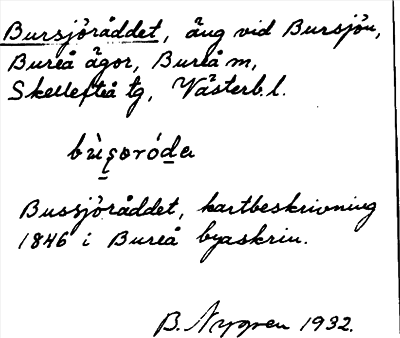 Bursjöråddet, äng vid Bursjön,
Bureå ägor, Bureå m,
Skellefteå tg, Västerb. l.
Bussjöråddet, kartbeskrivning
1846 i Bureå byaskrin.
B. Nygren 1932.